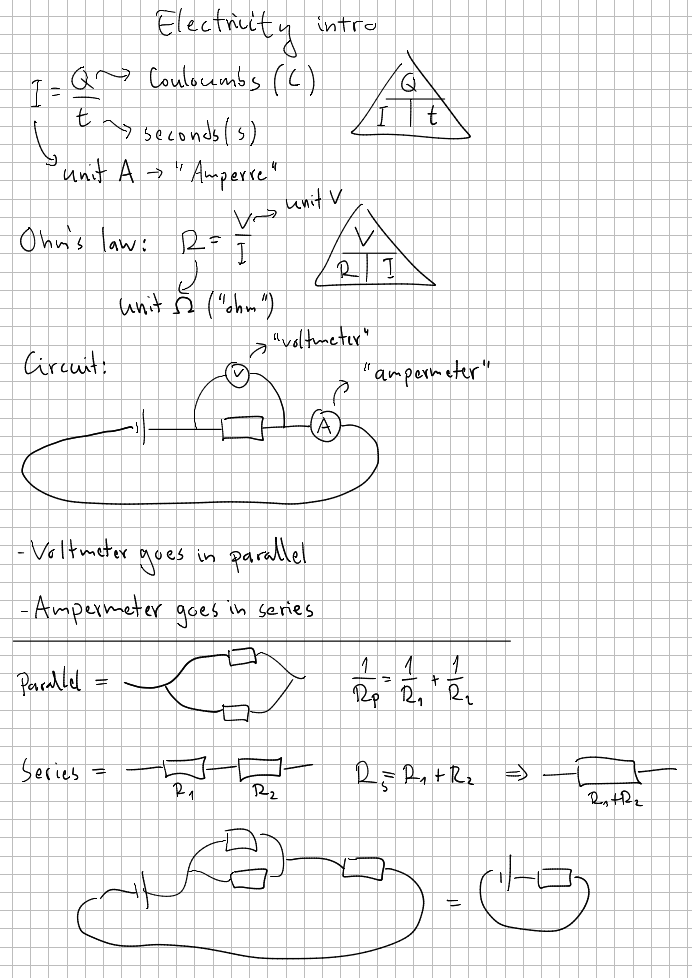 Electricity intro
I = Q/t
Q → Couloumbs (C)
t → seconds (s)
unit A → "Amperre"
Q
I t
Ohm's law: R = V/I
→ unit V
unit Ω ("ohm")
V
R I
Circuit:
"voltmeter"
V
"ampermeter"
A
- Voltmeter goes in parallel
- Ampermeter goes in series
Parallel =
1/Rp = 1/R1 + 1/R2
Series =
R1 R2
Rs = R1 + R2 ⇒
R1+R2
=